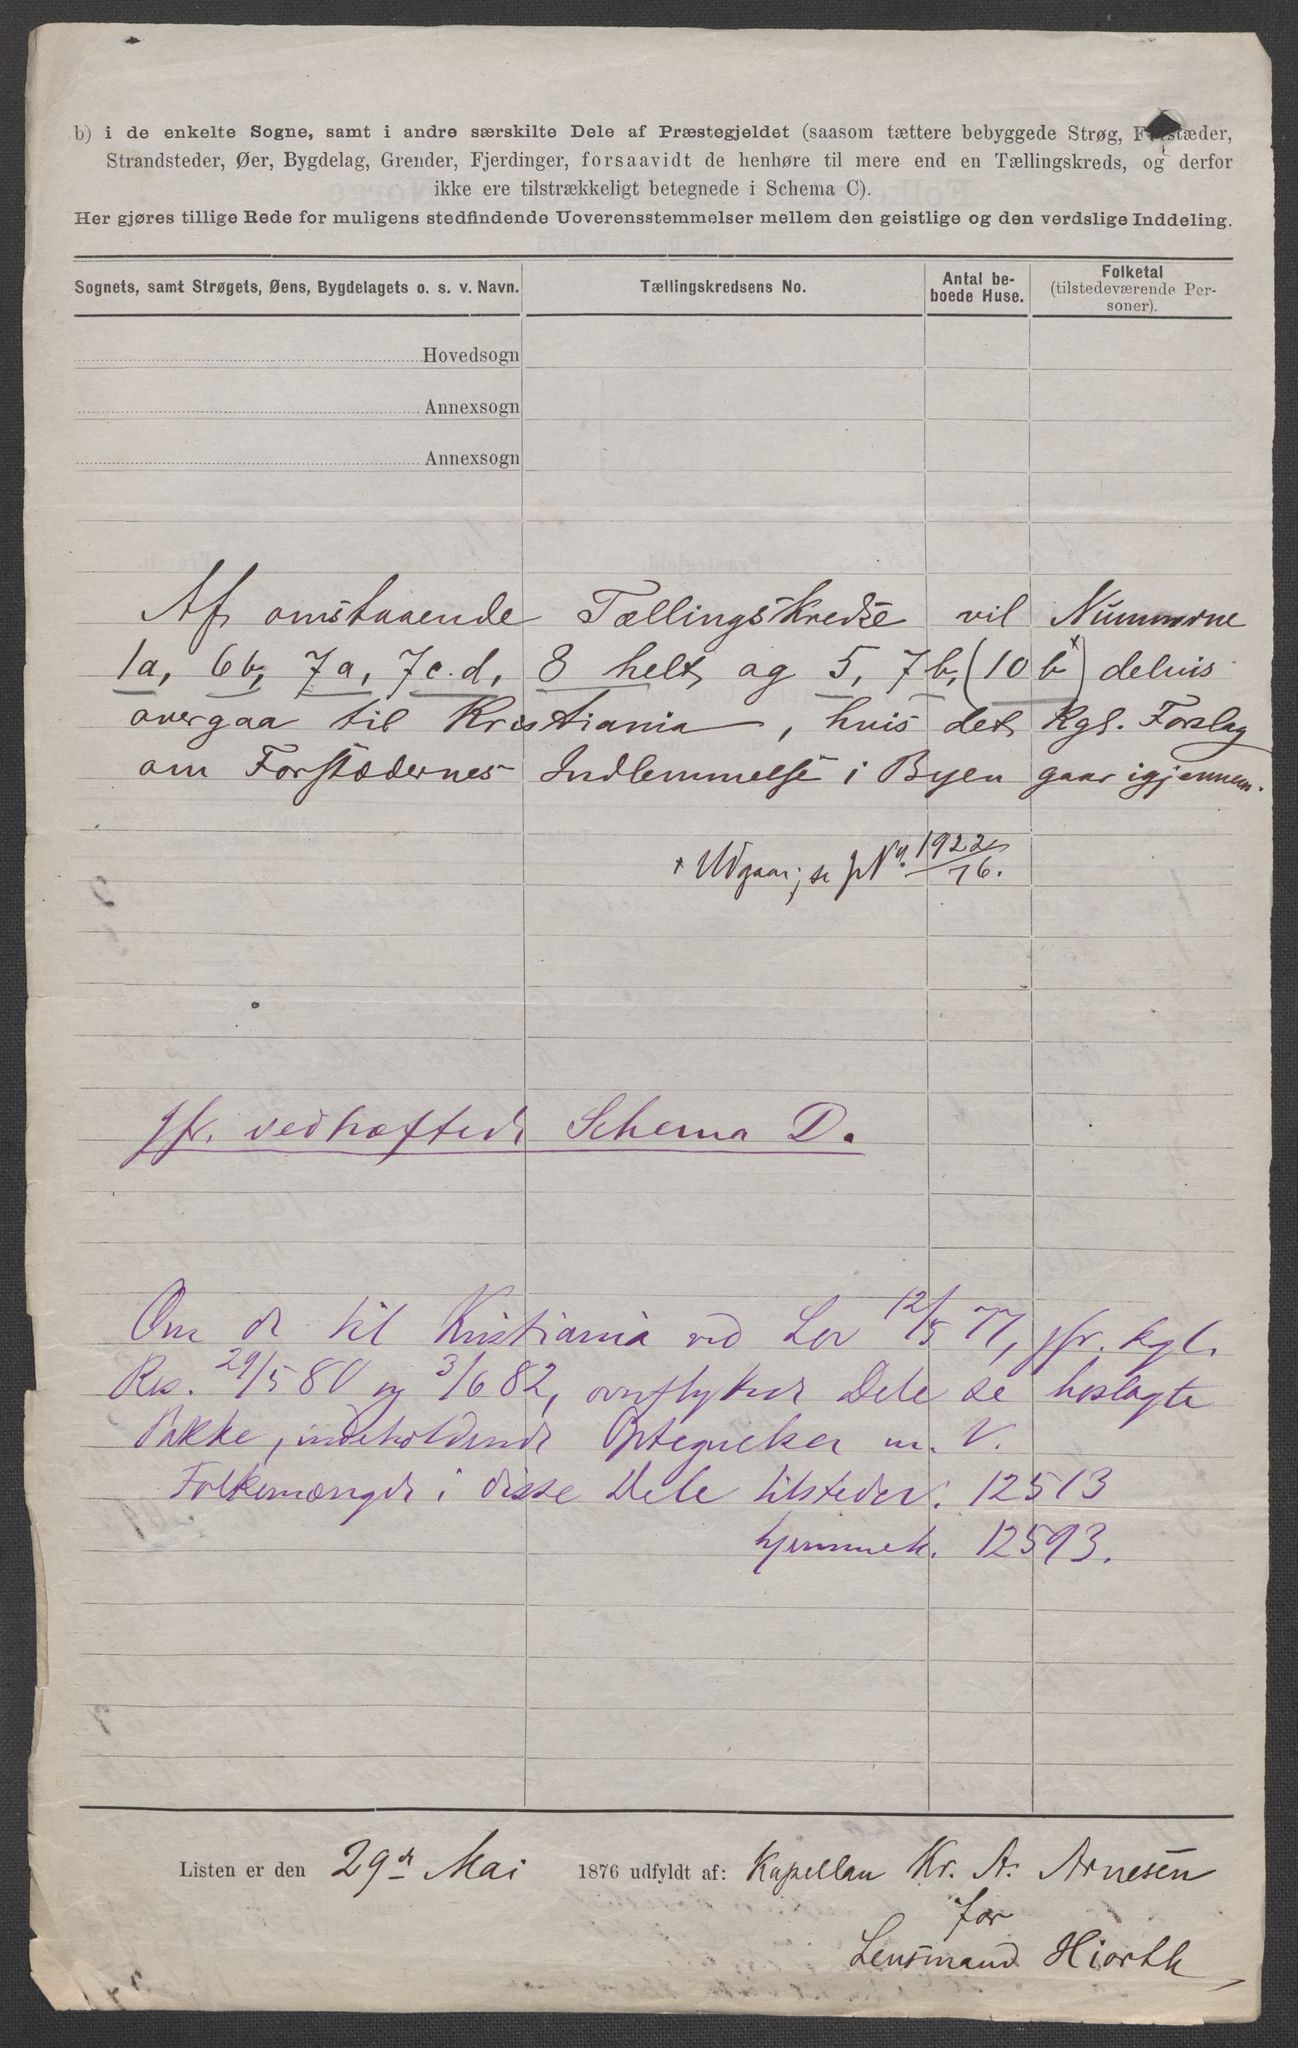 b) i de enkelte Sogne, samt i andre særskilte Dele af Præstegjeldet (saasom tættere bebyggede Strøg, Forstæder,
Strandsteder, Øer, Bygdelag, Grender, Fjerdinger, forsaavidt de henhøre til mere end en Tællingskreds, og derfor
ikke ere tilstrækkeligt betegnede i Schema C).
Her gjøres tillige Rede for muligens stedfindende Uoverensstemmelser mellem den geistlige og den verdslige Inddeling.
Sognets, samt Strøgets, Øens, Bygdelagets o. s. v. Navn.
Tællingskredsens No.
Antal be-
boede Huse.
Folketal
(tilstedeværende Per-
soner).
Hovedsogn
Annexsogn
Annexsogn
Af omstaaende Tællingskredse vil Nummerne
1a, 6b, 7a, 7c.d, 8 helt og 5, 7b, (10 b x) delvis
overgaa til Kristiania, hvis det Kgl. Forslag
om Forstædernes Indlemmelse i Byen gaar igjennem.
x Udgaar, se 1922/76.
jfr. vedhæftede Schema D.
Om de til Kristiania ved Lov 12/5 77, jfr. kgl.
Res. 29/5 80 og 3/6 82, overflyttede Dele se hoslagte
Pakke, indeholdende Optegnelser m. V.
Folkemængde i disse Dele tilstedev. 12513
hjemmeh. 12593.
Listen er den 29de Mai 1876 udfyldt af: Kapellan Kr. A. Arnesen
for
Lensmand Hiorth